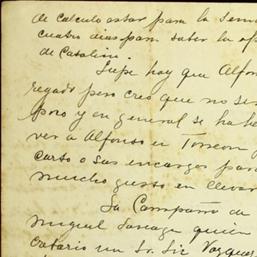 de calculo estar para la sema
cuatro dias para saber la op
de Catalina.
Supe hoy que Alfon
regado pero creo que no se
poco y en general se ha he
ver a Alfonso en Torreon y
carta o sus encargos para
mucho gusto en llevar
La Compañia de
Miguel quien
un Sr. Lic Vazquez